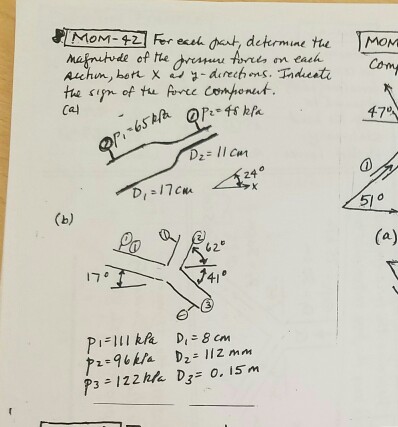 MOM-42 For each part, determine the
magnitude of the pressure forces on each
section, both x and y-directions. Indicate
the sign of the force component.
(a)
p1=65 kPa
p2=48 kPa
D2=11 cm
D1=17 cm
24°
x
(b)
①
①
②
62°
17°
41°
③
p1=111 kPa D1=8 cm
p2=96 kPa D2=112 mm
p3=122 kPa D3=0.15 m
MOM
Com
47°
①
51°
(a)